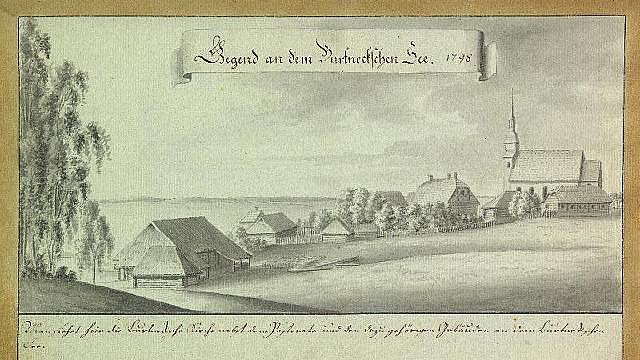 Gegend an dem Burtneckschen See. 1798
Man siehet hier die Burtnecksche Kirche nebst dem Pastorate und den dazu gehörigen Gebäuden an dem Burtneckschen
See.